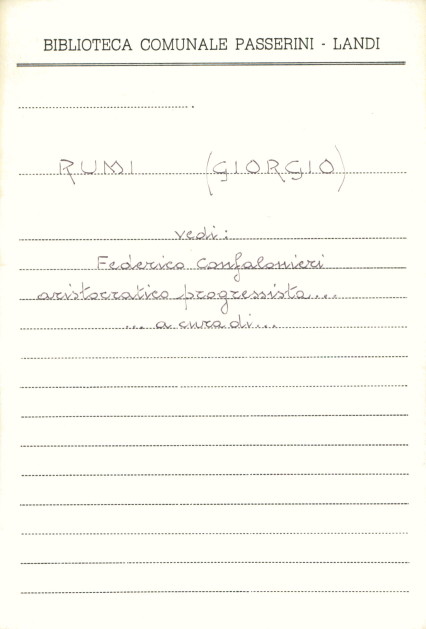 BIBLIOTECA COMUNALE PASSERINI - LANDI
RUMI (GIORGIO)
vedi:
Federico Confalonieri
aristocratico progressista...
... a cura di...